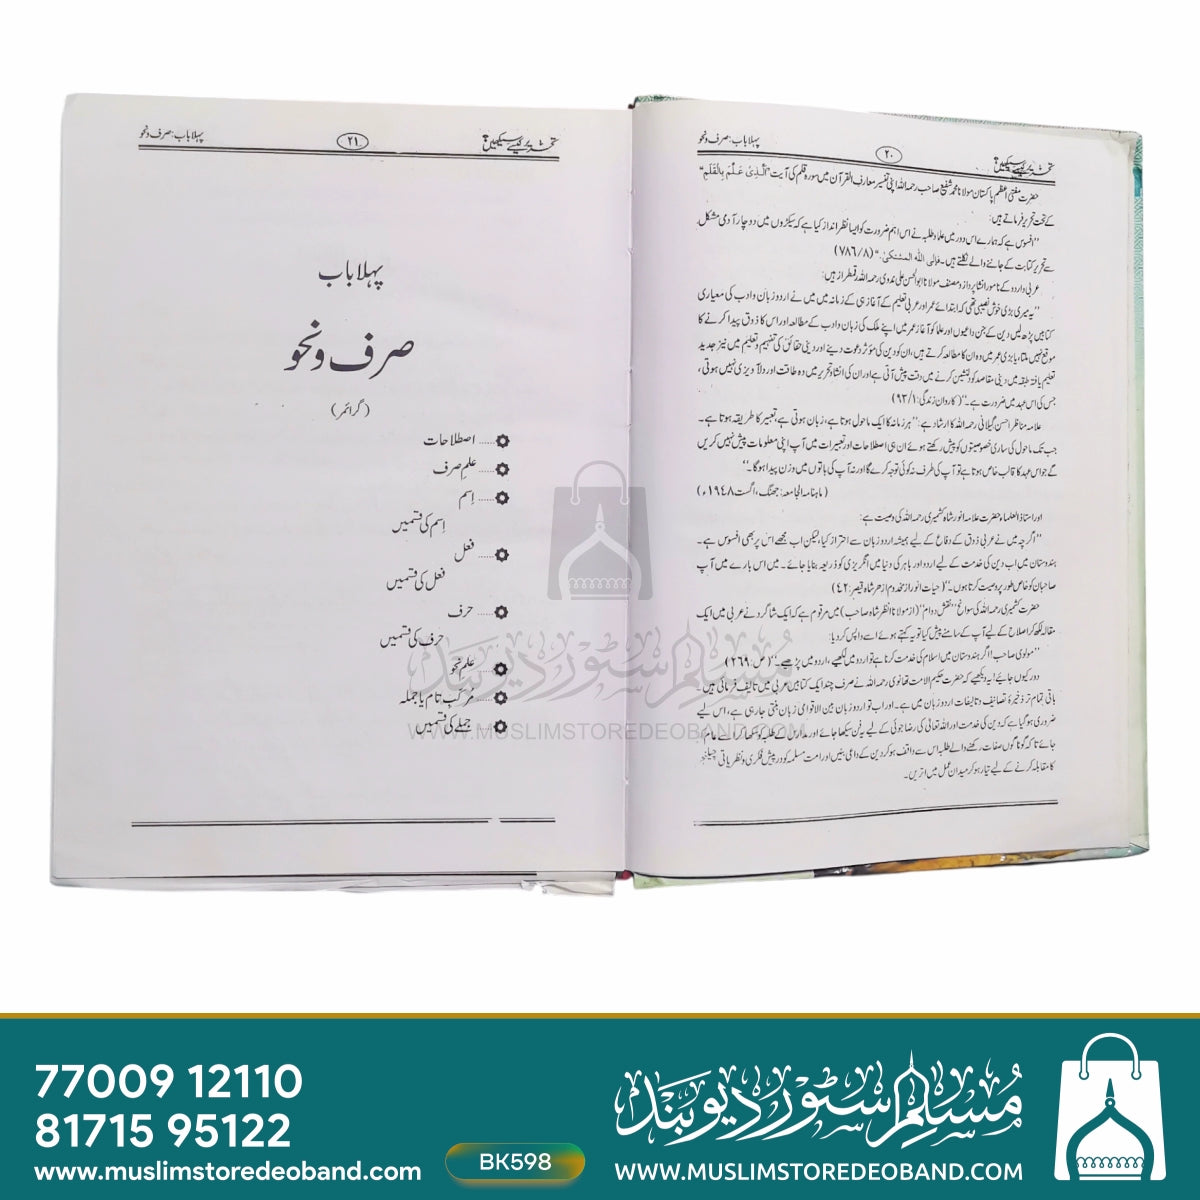 تحریر کیسے سیکھیں؟
۲۰
پہلا باب: صرف ونحو
حضرت مفتی اعظم پاکستان مولانا محمد شفیع صاحب رحمہ اللہ اپنی تفسیر معارف القرآن میں سورہ قلم کی آیت "الَّذِیْ عَلَّمَ بِالْقَلَمِ"
کے تحت تحریر فرماتے ہیں:
"افسوس ہے کہ ہمارے اس دور میں علماء طلبہ نے اس اہم ضرورت کو ایسا نظر انداز کیا ہے کہ سیکڑوں میں دو چار آدمی مشکل
سے تحریر کتابت کے جاننے والے نکلتے ہیں۔ فإلی اللہ المشتکیٰ۔" (۷۸۶/۸)
عربی و اردو کے نامور انشا پرداز و مصنف مولانا ابوالحسن علی ندوی رحمہ اللہ رقمطراز ہیں:
"یہ میری بڑی خوش نصیبی تھی کہ ابتدائے عمر اور عربی تعلیم کے آغاز ہی کے زمانہ میں میں نے اردو زبان و ادب کی معیاری
کتابیں پڑھ لیں دین کے جن داعیوں اور علما کو آغاز عمر میں اپنے ملک کی زبان و ادب کے مطالعہ اور اس کا ذوق پیدا کرنے کا
موقع نہیں ملتا، یا بڑی عمر میں وہ ان کا مطالعہ کرتے ہیں، ان کو دین کی مؤثر دعوت دینے اور دینی حقائق کی تفہیم و تعلیم میں نیز جدید
تعلیم یافتہ طبقہ میں دینی مقاصد کو دلنشین کرنے میں دقت پیش آتی ہے اور ان کی انشا و تحریر میں وہ طاقت اور دلآویزی نہیں ہوتی،
جس کی اس عہد میں ضرورت ہے۔" (کاروان زندگی: ۹۳/۱)
علامہ مناظر احسن گیلانی رحمہ اللہ کا ارشاد ہے: "ہر زمانہ کا ایک ماحول ہوتا ہے، زبان ہوتی ہے، تعبیر کا طریقہ ہوتا ہے۔
جب تک ماحول کی ساری خصوصیتوں کو پیش رکھتے ہوئے ان ہی اصطلاحات اور تعبیرات میں آپ اپنی معلومات پیش نہیں کریں
گے جو اس عہد کا قالب خاص ہوتا ہے تو آپ کی طرف نہ کوئی توجہ کرے گا اور نہ آپ کی باتوں میں وزن پیدا ہوگا۔"
(ماہنامہ الجامعہ: جھنگ، اگست ۱۹۴۸ء)
اور استاذ العلماء حضرت علامہ انور شاہ کشمیری رحمہ اللہ کی وصیت ہے:
"اگرچہ میں نے عربی ذوق کے دفاع کے لیے ہمیشہ اردو زبان سے احتراز کیا، لیکن اب مجھے اس پر بھی افسوس ہے۔
ہندوستان میں اب دین کی خدمت کے لیے اردو اور باہر کی دنیا میں انگریزی کو ذریعہ بنایا جائے۔ میں اس بارے میں آپ
صاحبان کو خاص طور پر وصیت کرتا ہوں۔" (حیات انور از مخدوم ازھر شاہ قیصر: ۴۲)
حضرت کشمیری رحمہ اللہ کی سوانح "نقش دوام" (از مولانا انظر شاہ صاحب) میں مرقوم ہے کہ ایک شاگرد نے عربی میں ایک
مقالہ لکھ کر اصلاح کے لیے آپ کے سامنے پیش کیا تو یہ کہتے ہوئے اسے واپس کردیا:
"مولوی صاحب! اگر ہندوستان میں اسلام کی خدمت کرنا ہے تو اردو میں لکھیے، اردو میں پڑھیے۔" (ص: ۲۶۹)
دور کیوں جائے! یہ دیکھیے کہ حضرت حکیم الامت تھانوی رحمہ اللہ نے صرف چند ایک کتابیں عربی میں تالیف فرمائی ہیں۔
باقی تمام تر ذخیرۂ تصانیف و تالیفات اردو زبان میں ہے۔ اور اب تو اردو زبان بین الاقوامی زبان بنتی جارہی ہے، اس لیے
ضروری ہوگیا ہے کہ دین کی خدمت اور اللہ تعالی کی رضا جوئی کے لیے یہ فن سیکھا جائے اور مدارس کے طلبہ کو سکھا کر اسے عام
جائے تاکہ گوناگوں صفات رکھنے والے طلبہ اس سے واقف ہوکر دین کے داعی بنیں اور امت مسلمہ کو درپیش فکری و نظریاتی چیلنجز
کا مقابلہ کرنے کے لیے تیار ہوکر میدان عمل میں اتریں۔
تحریر کیسے سیکھیں؟
۲۱
پہلا باب: صرف ونحو
پہلا باب
صرف ونحو
(گرائمر)
اصطلاحات
علم صرف
اسم
اسم کی قسمیں
فعل
فعل کی قسمیں
حرف
حرف کی قسمیں
علم نحو
مرکب تام یا جملہ
جملے کی قسمیں
مسلم سٹور دیوبند
WWW.MUSLIMSTOREDEOBAND.COM
77009 12110
81715 95122
www.muslimstoredeoband.com
BK598
مسلم سٹور دیوبند
WWW.MUSLIMSTOREDEOBAND.COM